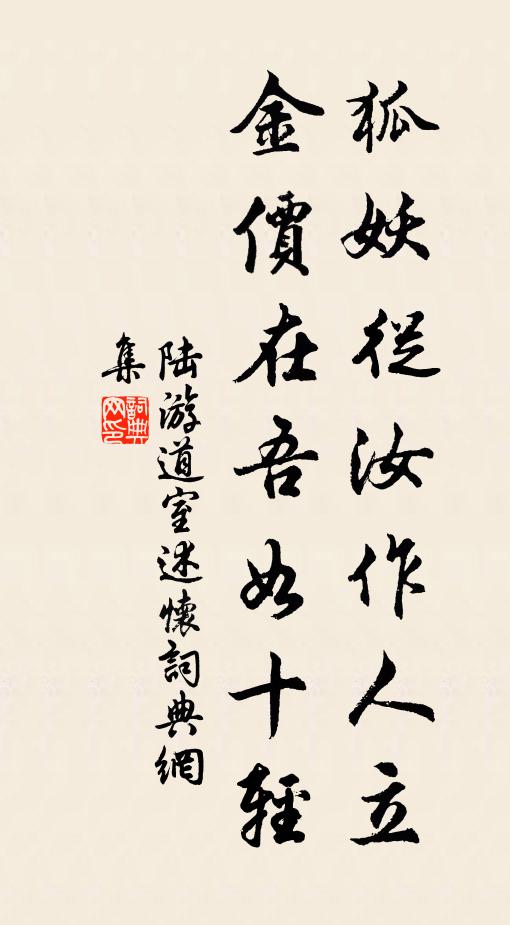 狐妖從汝作人立
金價在吾如十輕
陆游道室述懷詞典網
集
詞典
网印